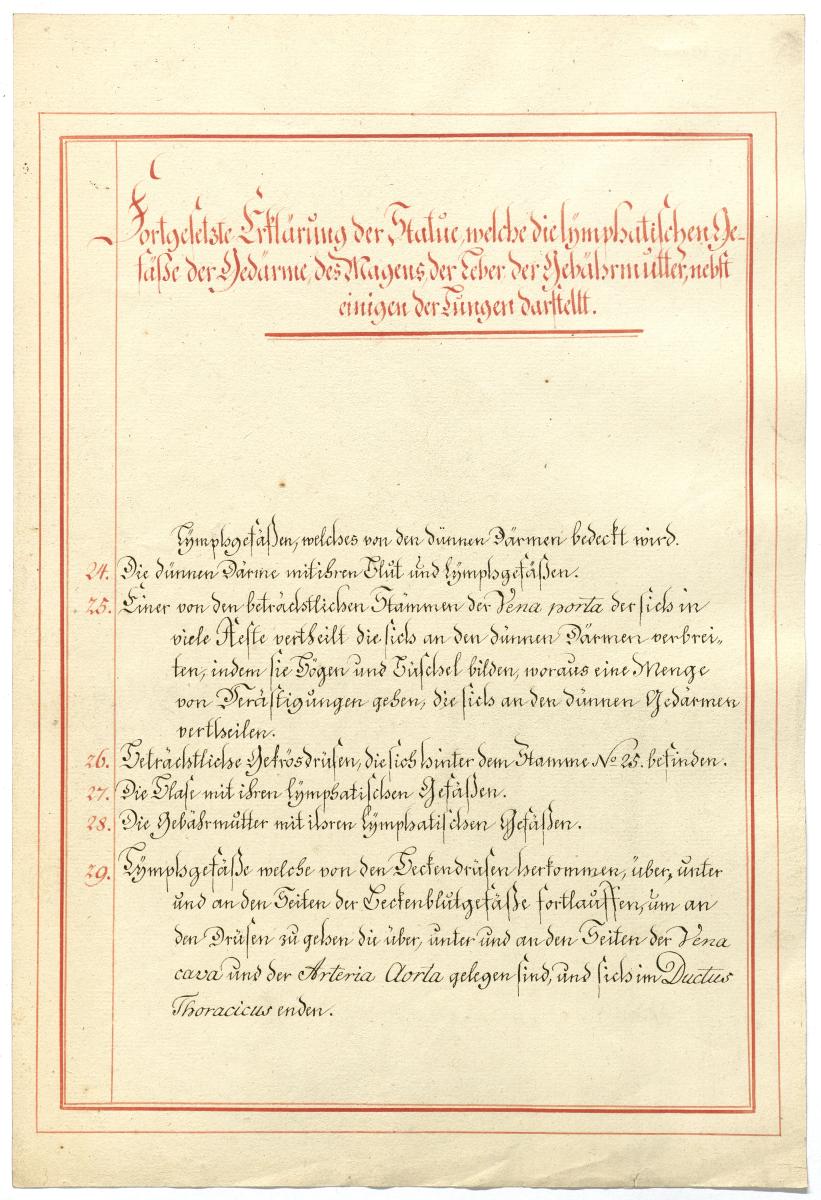 Fortgesetzte Erklärung der Statue, welche die lymphatischen Ge-
fäße der Gedärme, des Magens, der Leber, der Gebährmutter, nebst
einigen der Lungen darstellt.
Lÿmphgefäßen, welches von den dünnen Därmen bedeckt wird.
24. Die dünnen Därme mit ihren Blut und Lÿmphgefäßen.
25. Einer von den beträchtlichen Stämmen der Vena porta der sich in
viele Aeste vertheilt die sich an den dünnen Därmen verbrei-
ten, indem sie Bögen und Büschel bilden, woraus eine Menge
von Verästigungen gehen, die sich an den dünnen Gedärmen
vertheilen.
26. Beträchtliche Gekrösdrüsen, die sich hinter dem Stamme No 25. befinden.
27. Die Blase mit ihren lÿmphatischen Gefäßen.
28. Die Gebährmutter mit ihren lÿmphatischen Gefäßen.
29. Lÿmphgefäße welche von den Beckendrüsen herkommen, über, unter
und an den Seiten der Beckenblutgefäße fortlauffen, um an
den Drüsen zu gehen die über, unter und an den Seiten der Vena
cava und der Arteria Aorta gelegen sind, und sich im Ductus
Thoracicus enden.